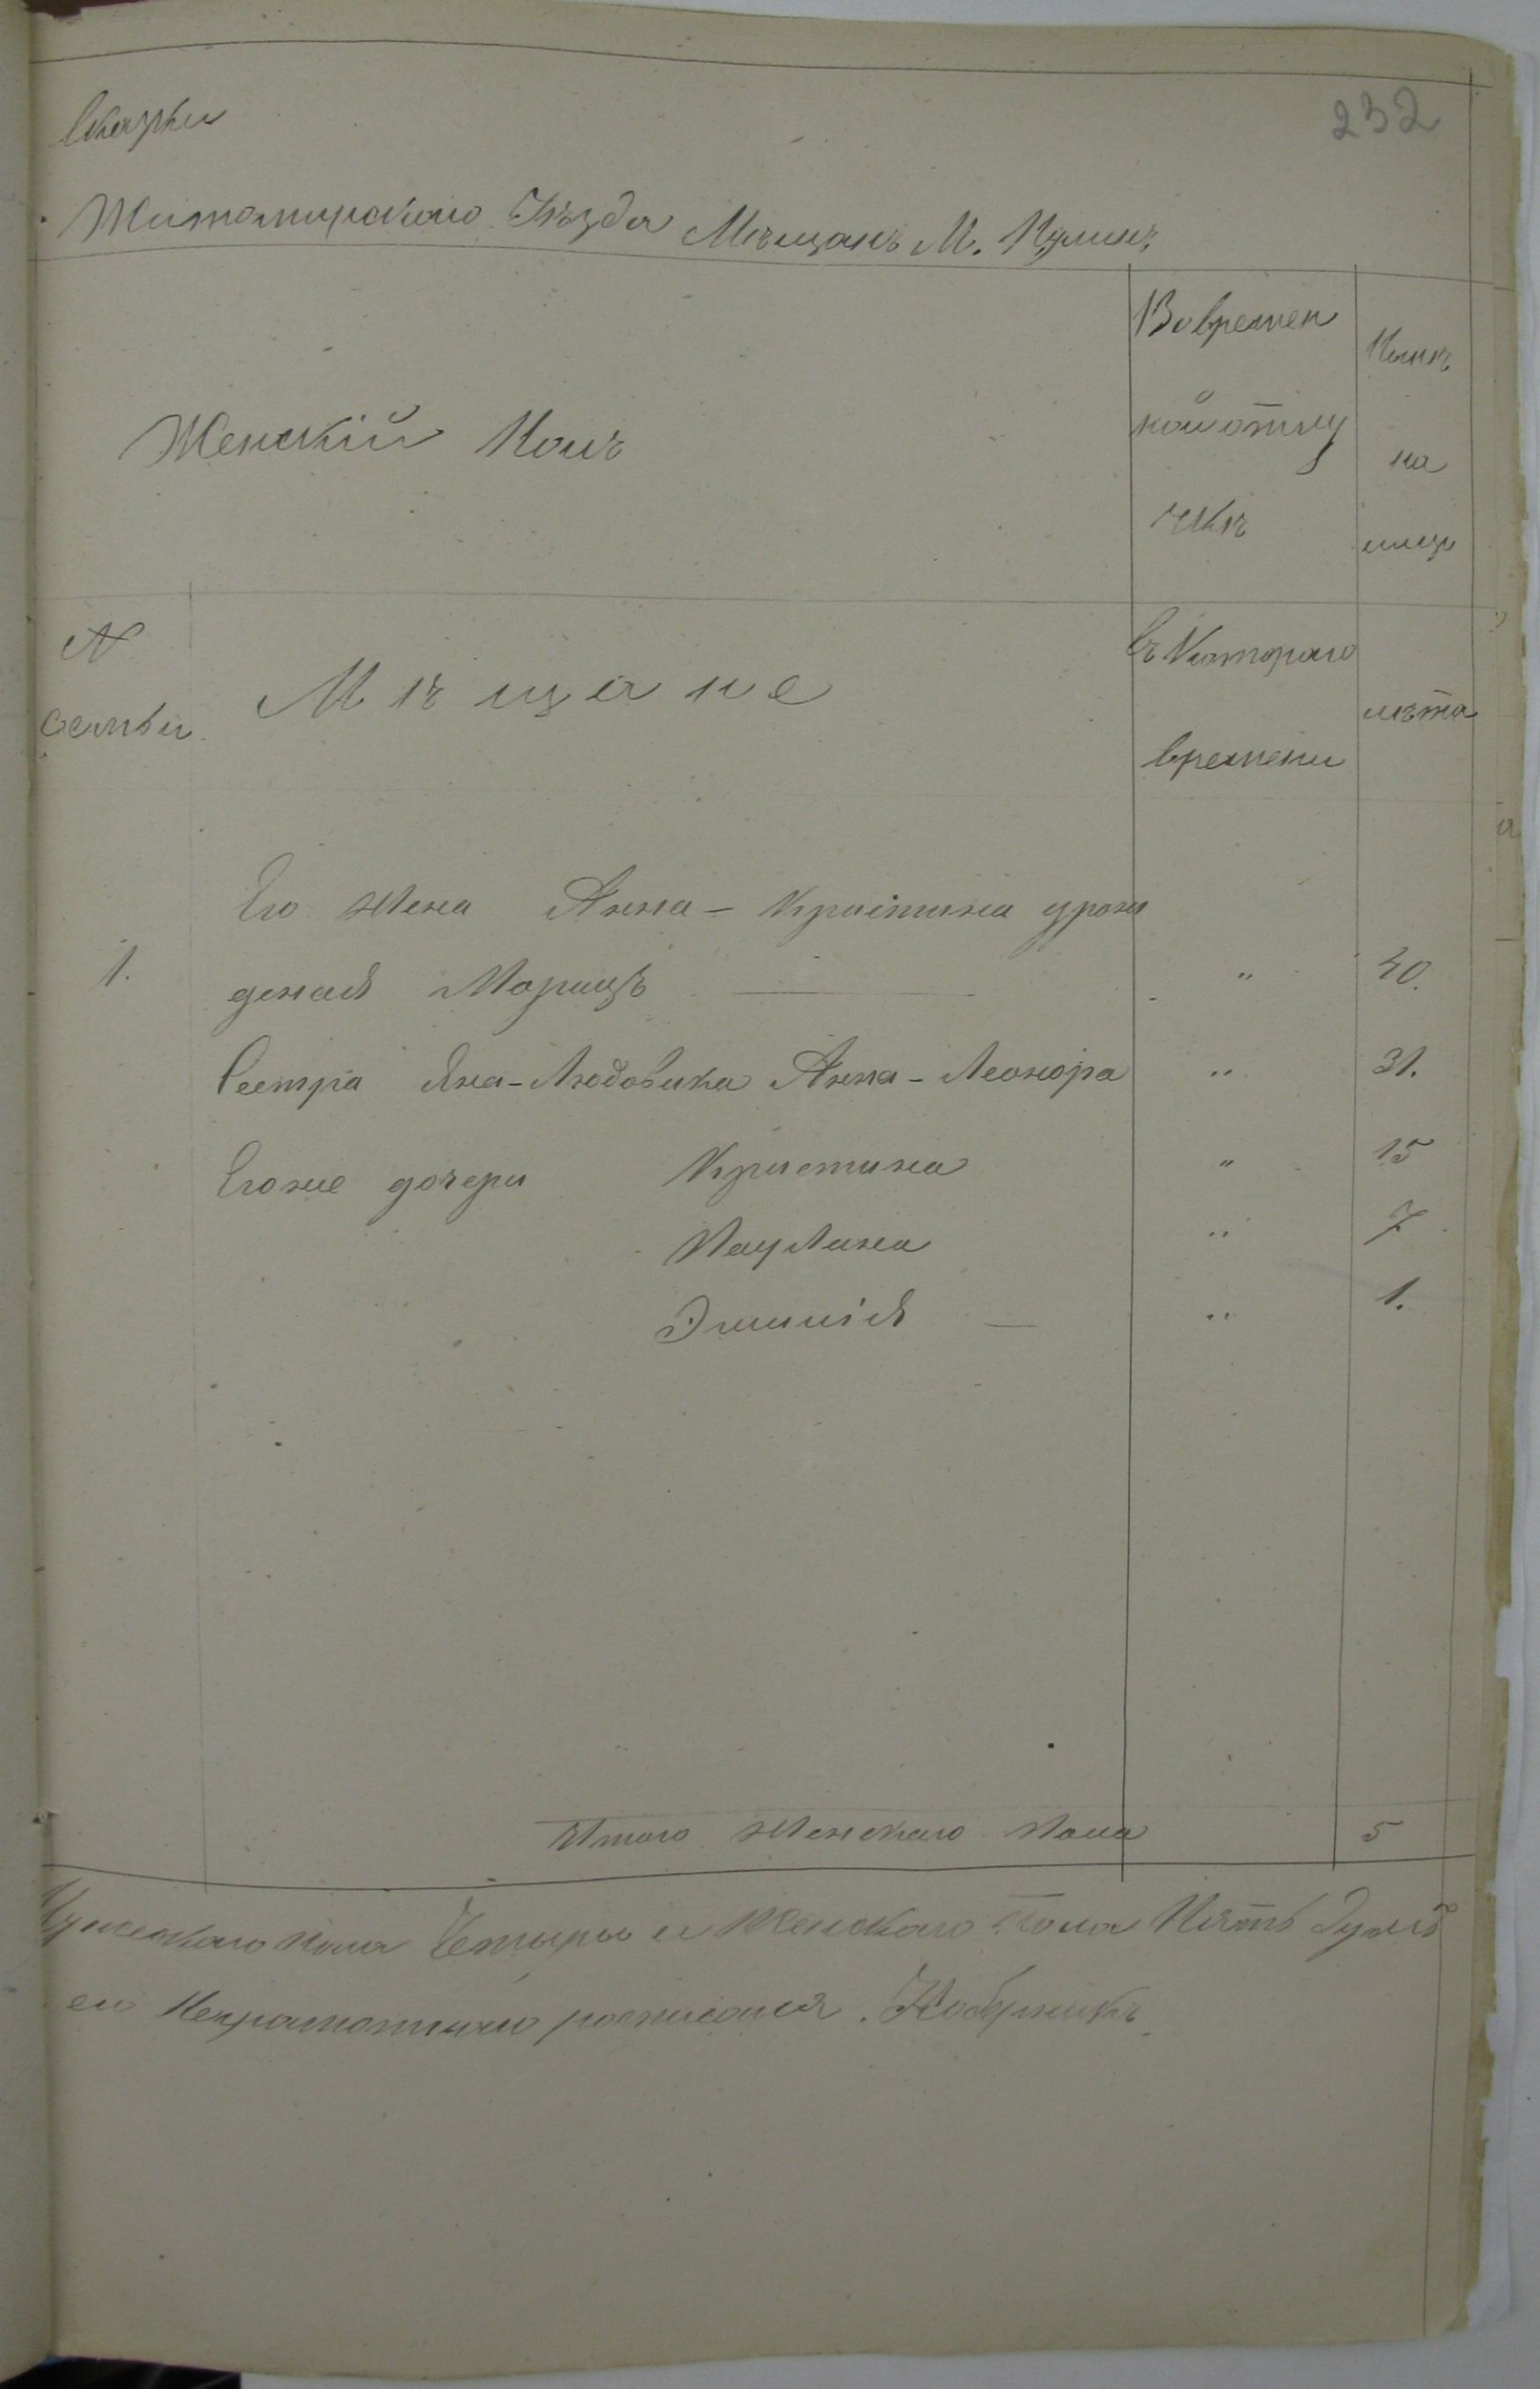 232
Сказки
Житомирскаго Уѣзда Мѣщанъ М. Пулинъ
Женскій Полъ
Во времен
ной отлу
чкѣ
Нынѣ
на
лицо
N
семьи
Мѣщане
Съ Котораго
времени
лѣта
Его жена Анна-Кристина урож
1. деная Морицъ " 40.
Сестра Яна-Людовика Анна-Леонора " 31.
Егоже дочери Кристина " 15
Паулина " 7
Эмилія " 1.
Итого женскаго пола 5
Мужескаго пола Четыри и Женскаго пола Пять душъ
его Неграмотнаго росписался.